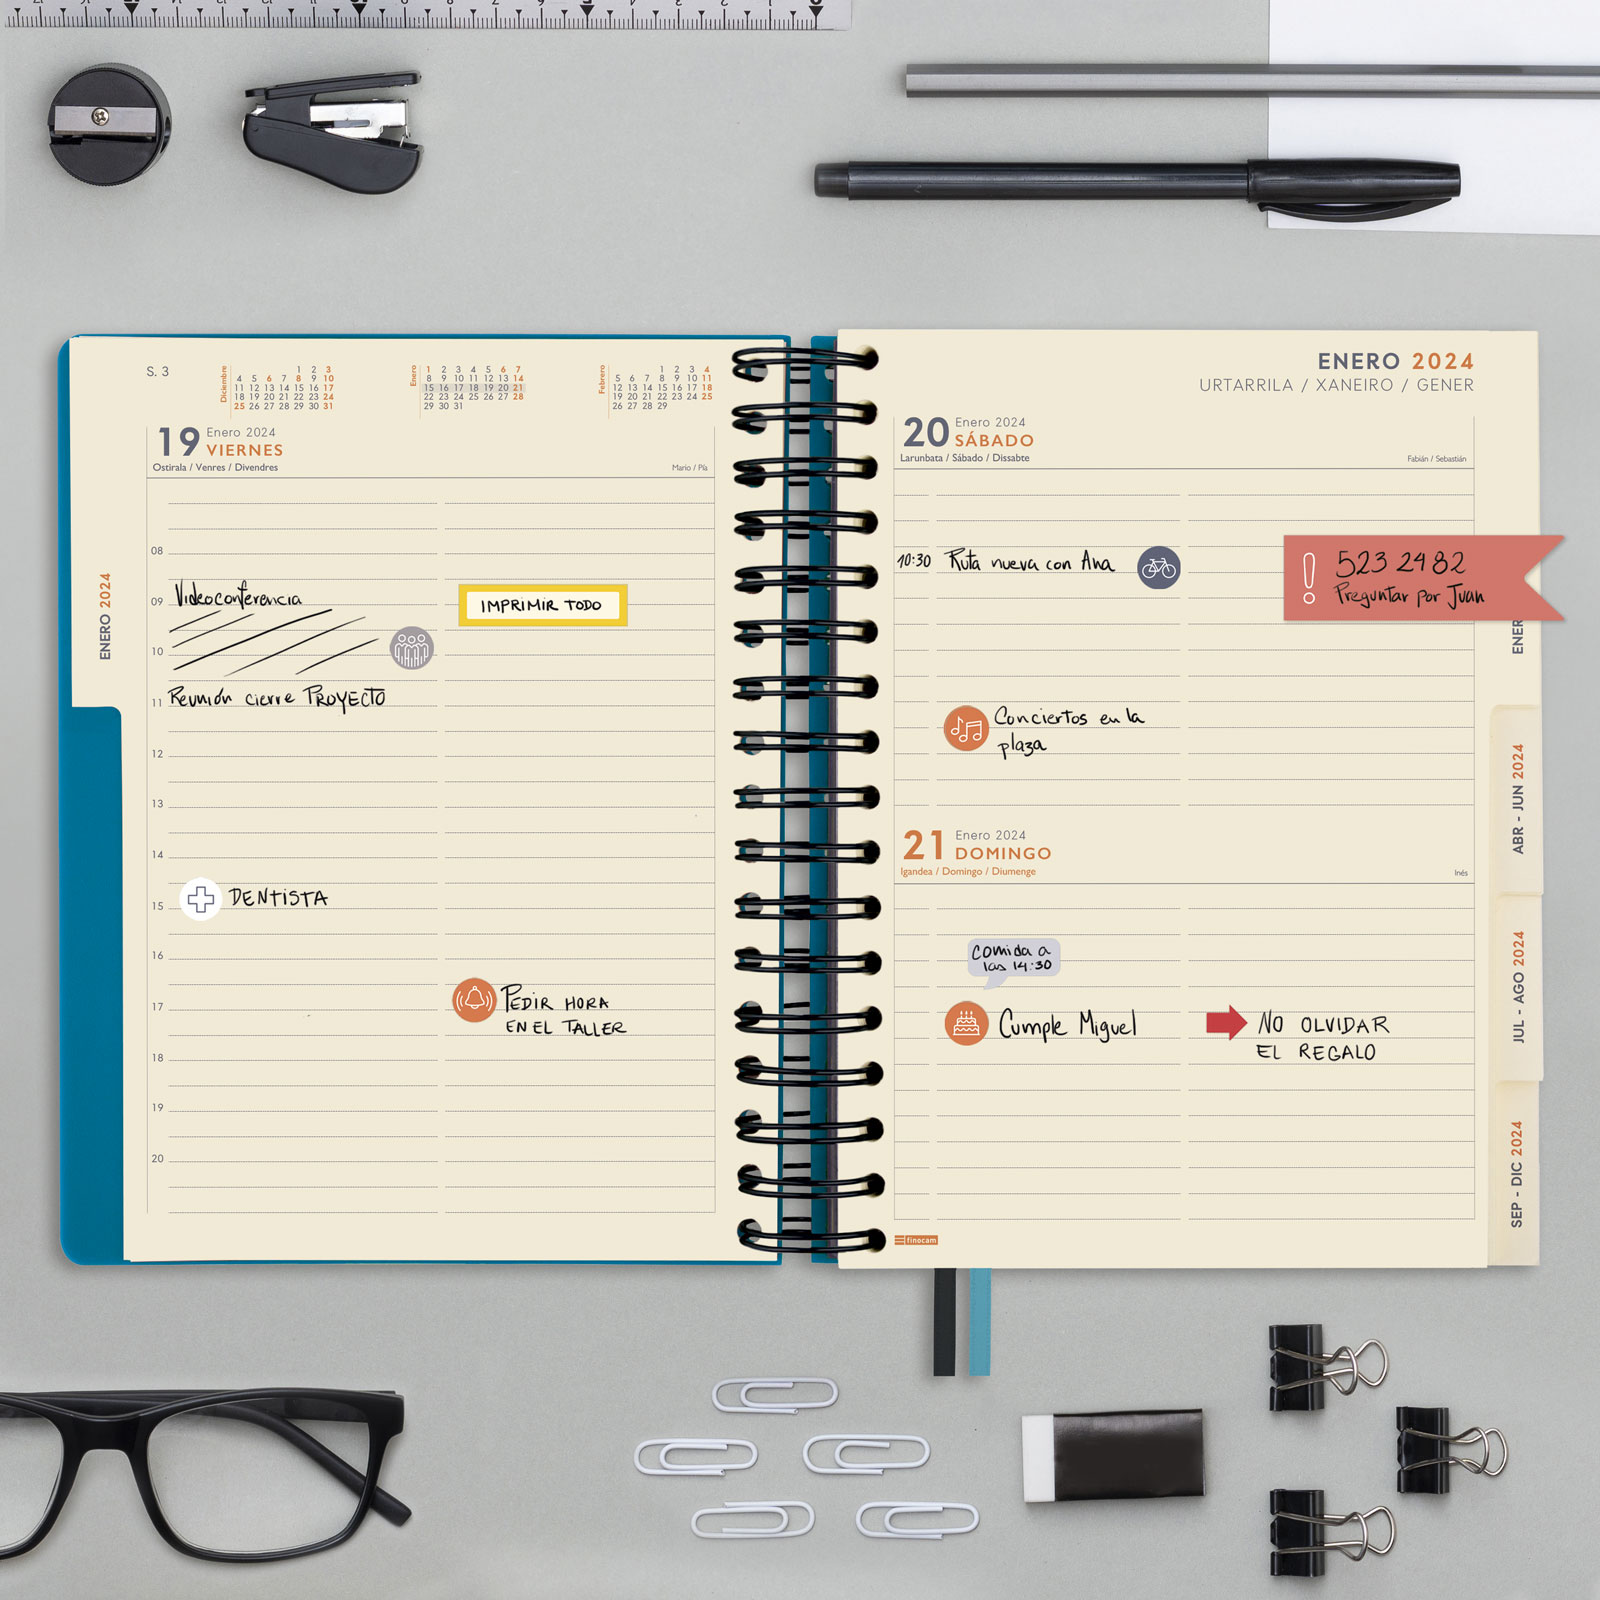 S. 3
Diciembre
1 2 3
4 5 6 7 8 9 10
11 12 13 14 15 16 17
18 19 20 21 22 23 24
25 26 27 28 29 30 31
Enero
1 2 3 4 5 6 7
8 9 10 11 12 13 14
15 16 17 18 19 20 21
22 23 24 25 26 27 28
29 30 31
Febrero
1 2 3 4
5 6 7 8 9 10 11
12 13 14 15 16 17 18
19 20 21 22 23 24 25
26 27 28 29
19 Enero 2024
VIERNES
Ostirala / Venres / Divendres
Mario / Pís
ENERO 2024
08
09 Videoconferencia
IMPRIMIR TODO
10
11 Reunión cierre PROYECTO
12
13
14
15 DENTISTA
16
17 PEDIR HORA
EN EL TALLER
18
19
20
ENERO 2024
URTARRILA / XANEIRO / GENER
20 Enero 2024
SÁBADO
Larunbata / Sábado / Dissabte
Fabián / Sebastián
10:30 Ruta nueva con Ana
! 523 2482
Preguntar por Juan
Conciertos en la
plaza
21 Enero 2024
DOMINGO
Igandea / Domingo / Diumenge
Inés
Comida a
las 14:30
Cumple Miguel
NO OLVIDAR
EL REGALO
finocam
ENER
ABR - JUN 2024
JUL - AGO 2024
SEP - DIC 2024